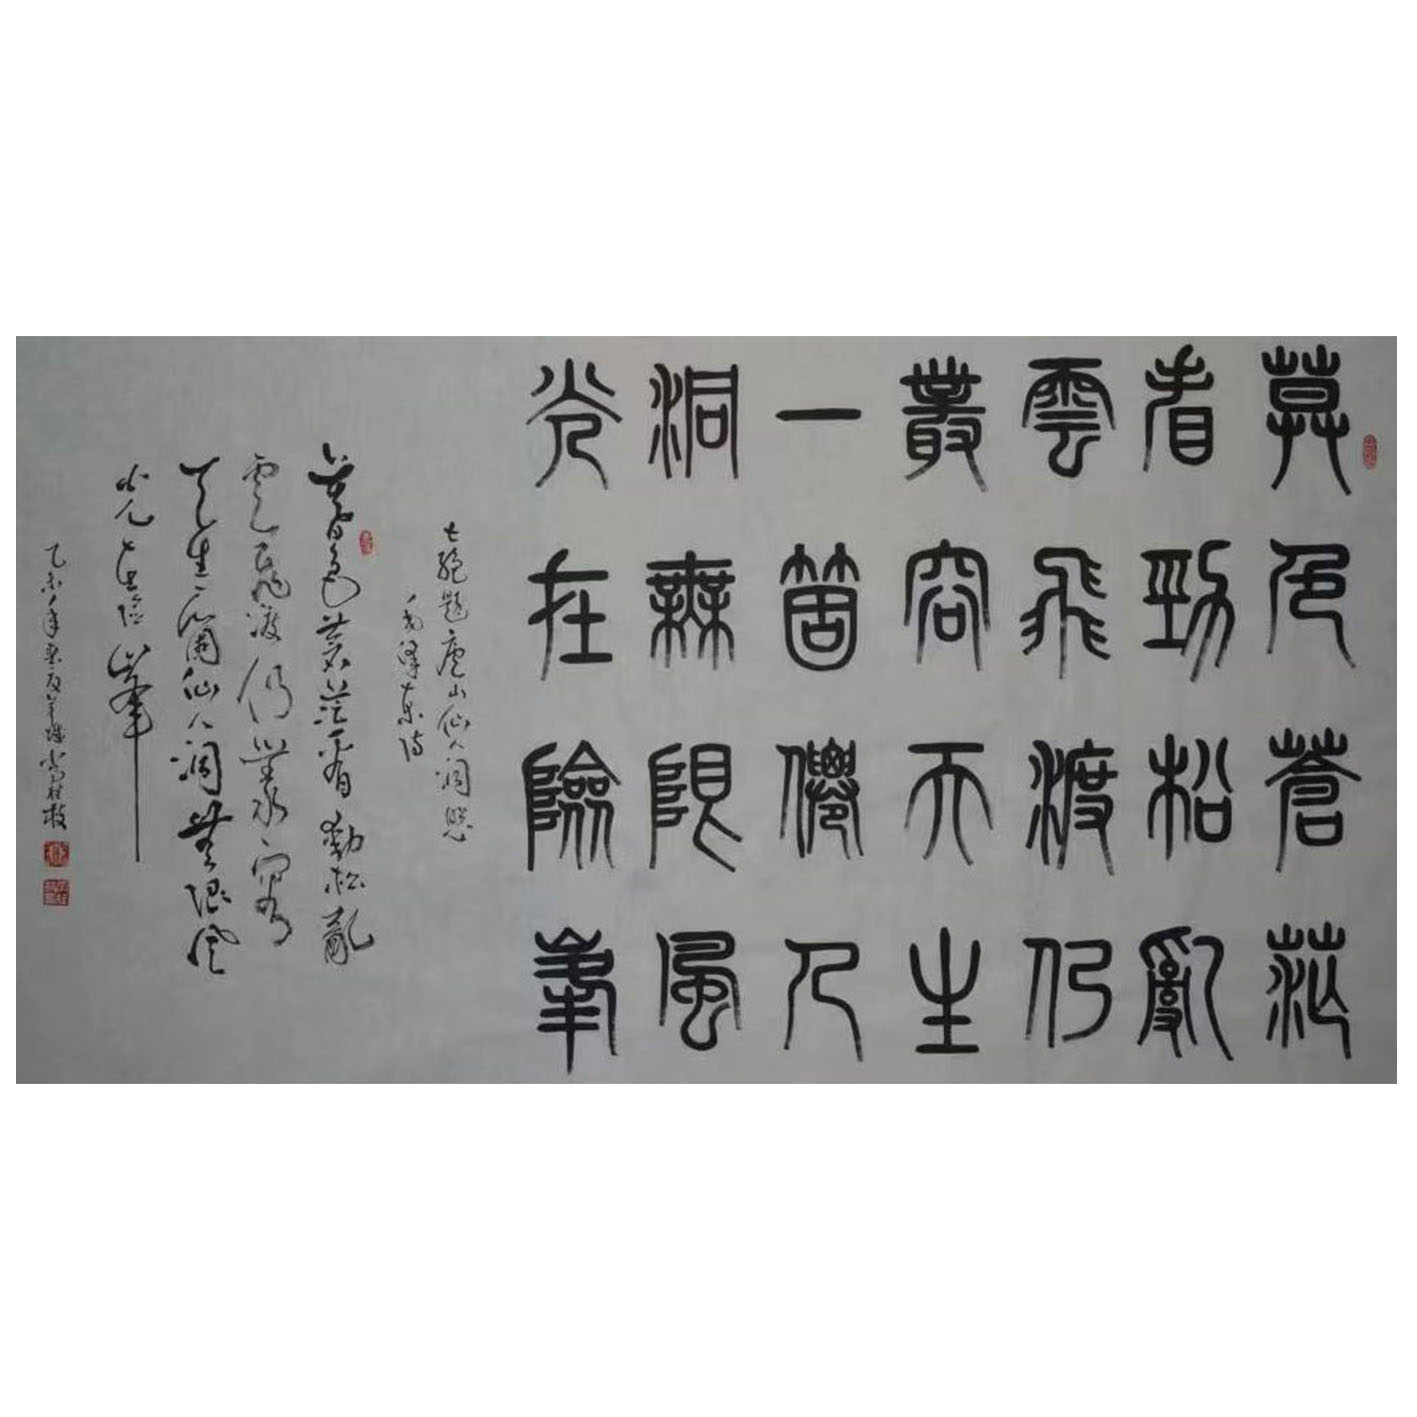 莫色蒼茫
看勁松亂
雲飛渡仍
叢容天生
一箇僊人
洞無限風
光在險峯
七絕題廬山仙人洞照
毛澤東詩
暮色蒼茫看勁松亂
雲飛渡仍叢容
天生一個仙人洞無限風
光在險峯
乙未年